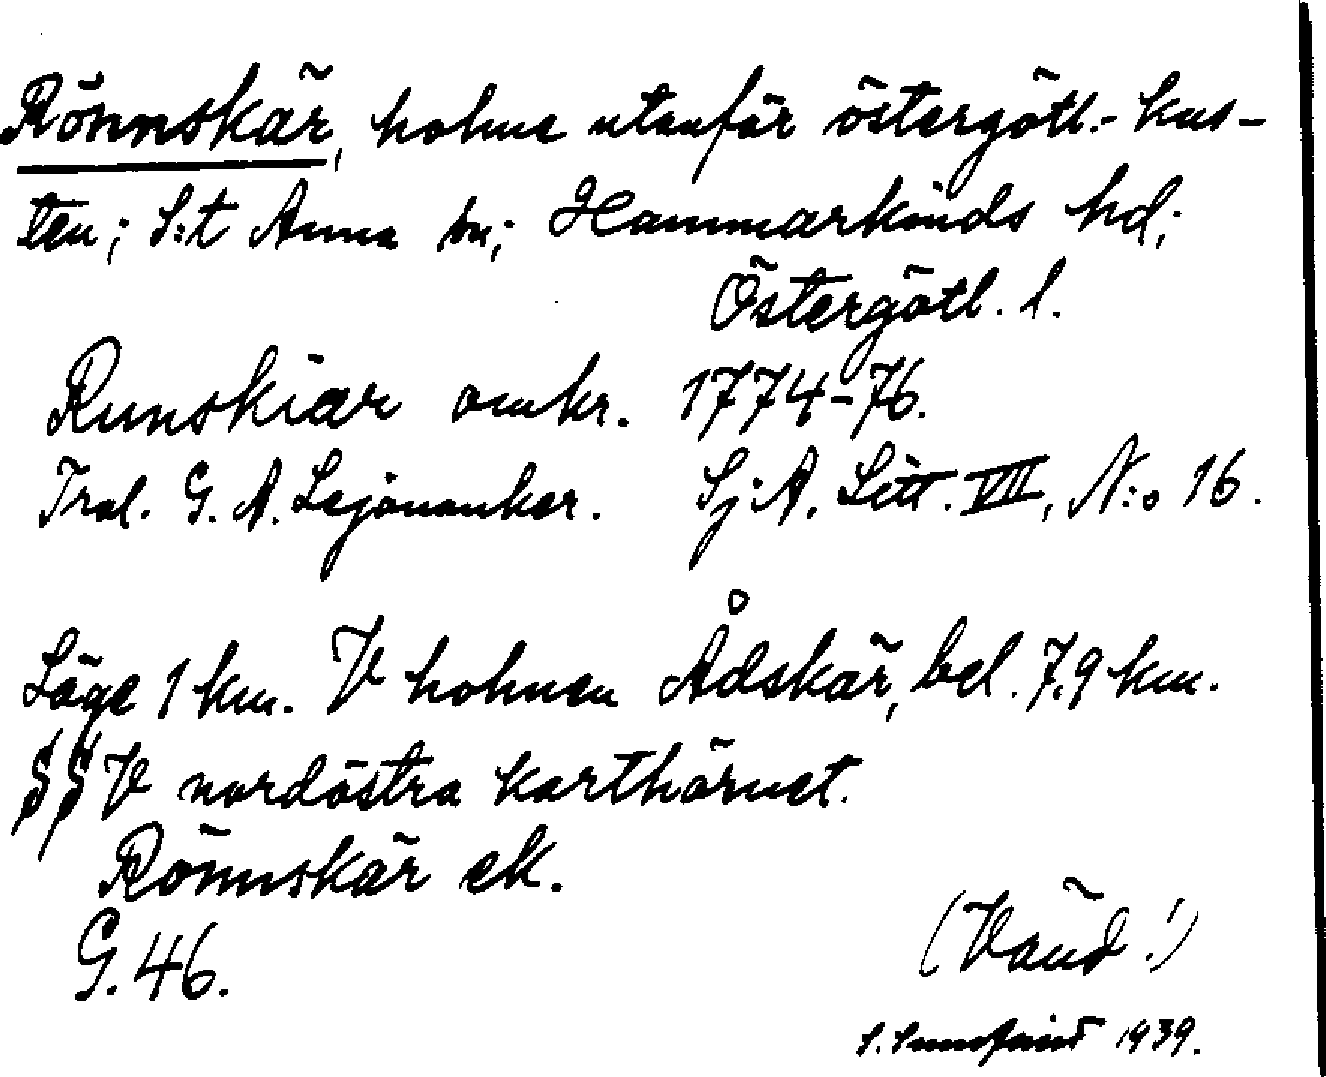 Rönnskär, holme utanför östergötl.- kus-
ten; S:t Anna sn; Hammarkinds hd;
Östergötl. l.
Runskiär omkr. 1774-76.
Tral. G. A. Lejonanker. Sj:A. Litt. VII, N:o 16.
Läge 1 km. V holmen Ådskär, bel. 7,9 km.
§§ V nordöstra karthörnet.
Rönnskär ek.
G. 46.
(Vänd!)
S. 1939.